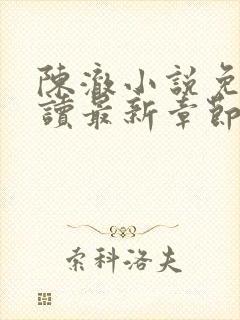 陳澈小說免
讀最新章節
索科洛夫